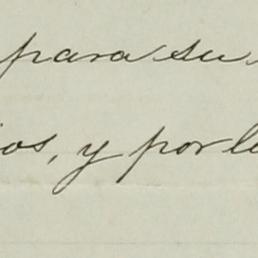 para su
ios, y por l